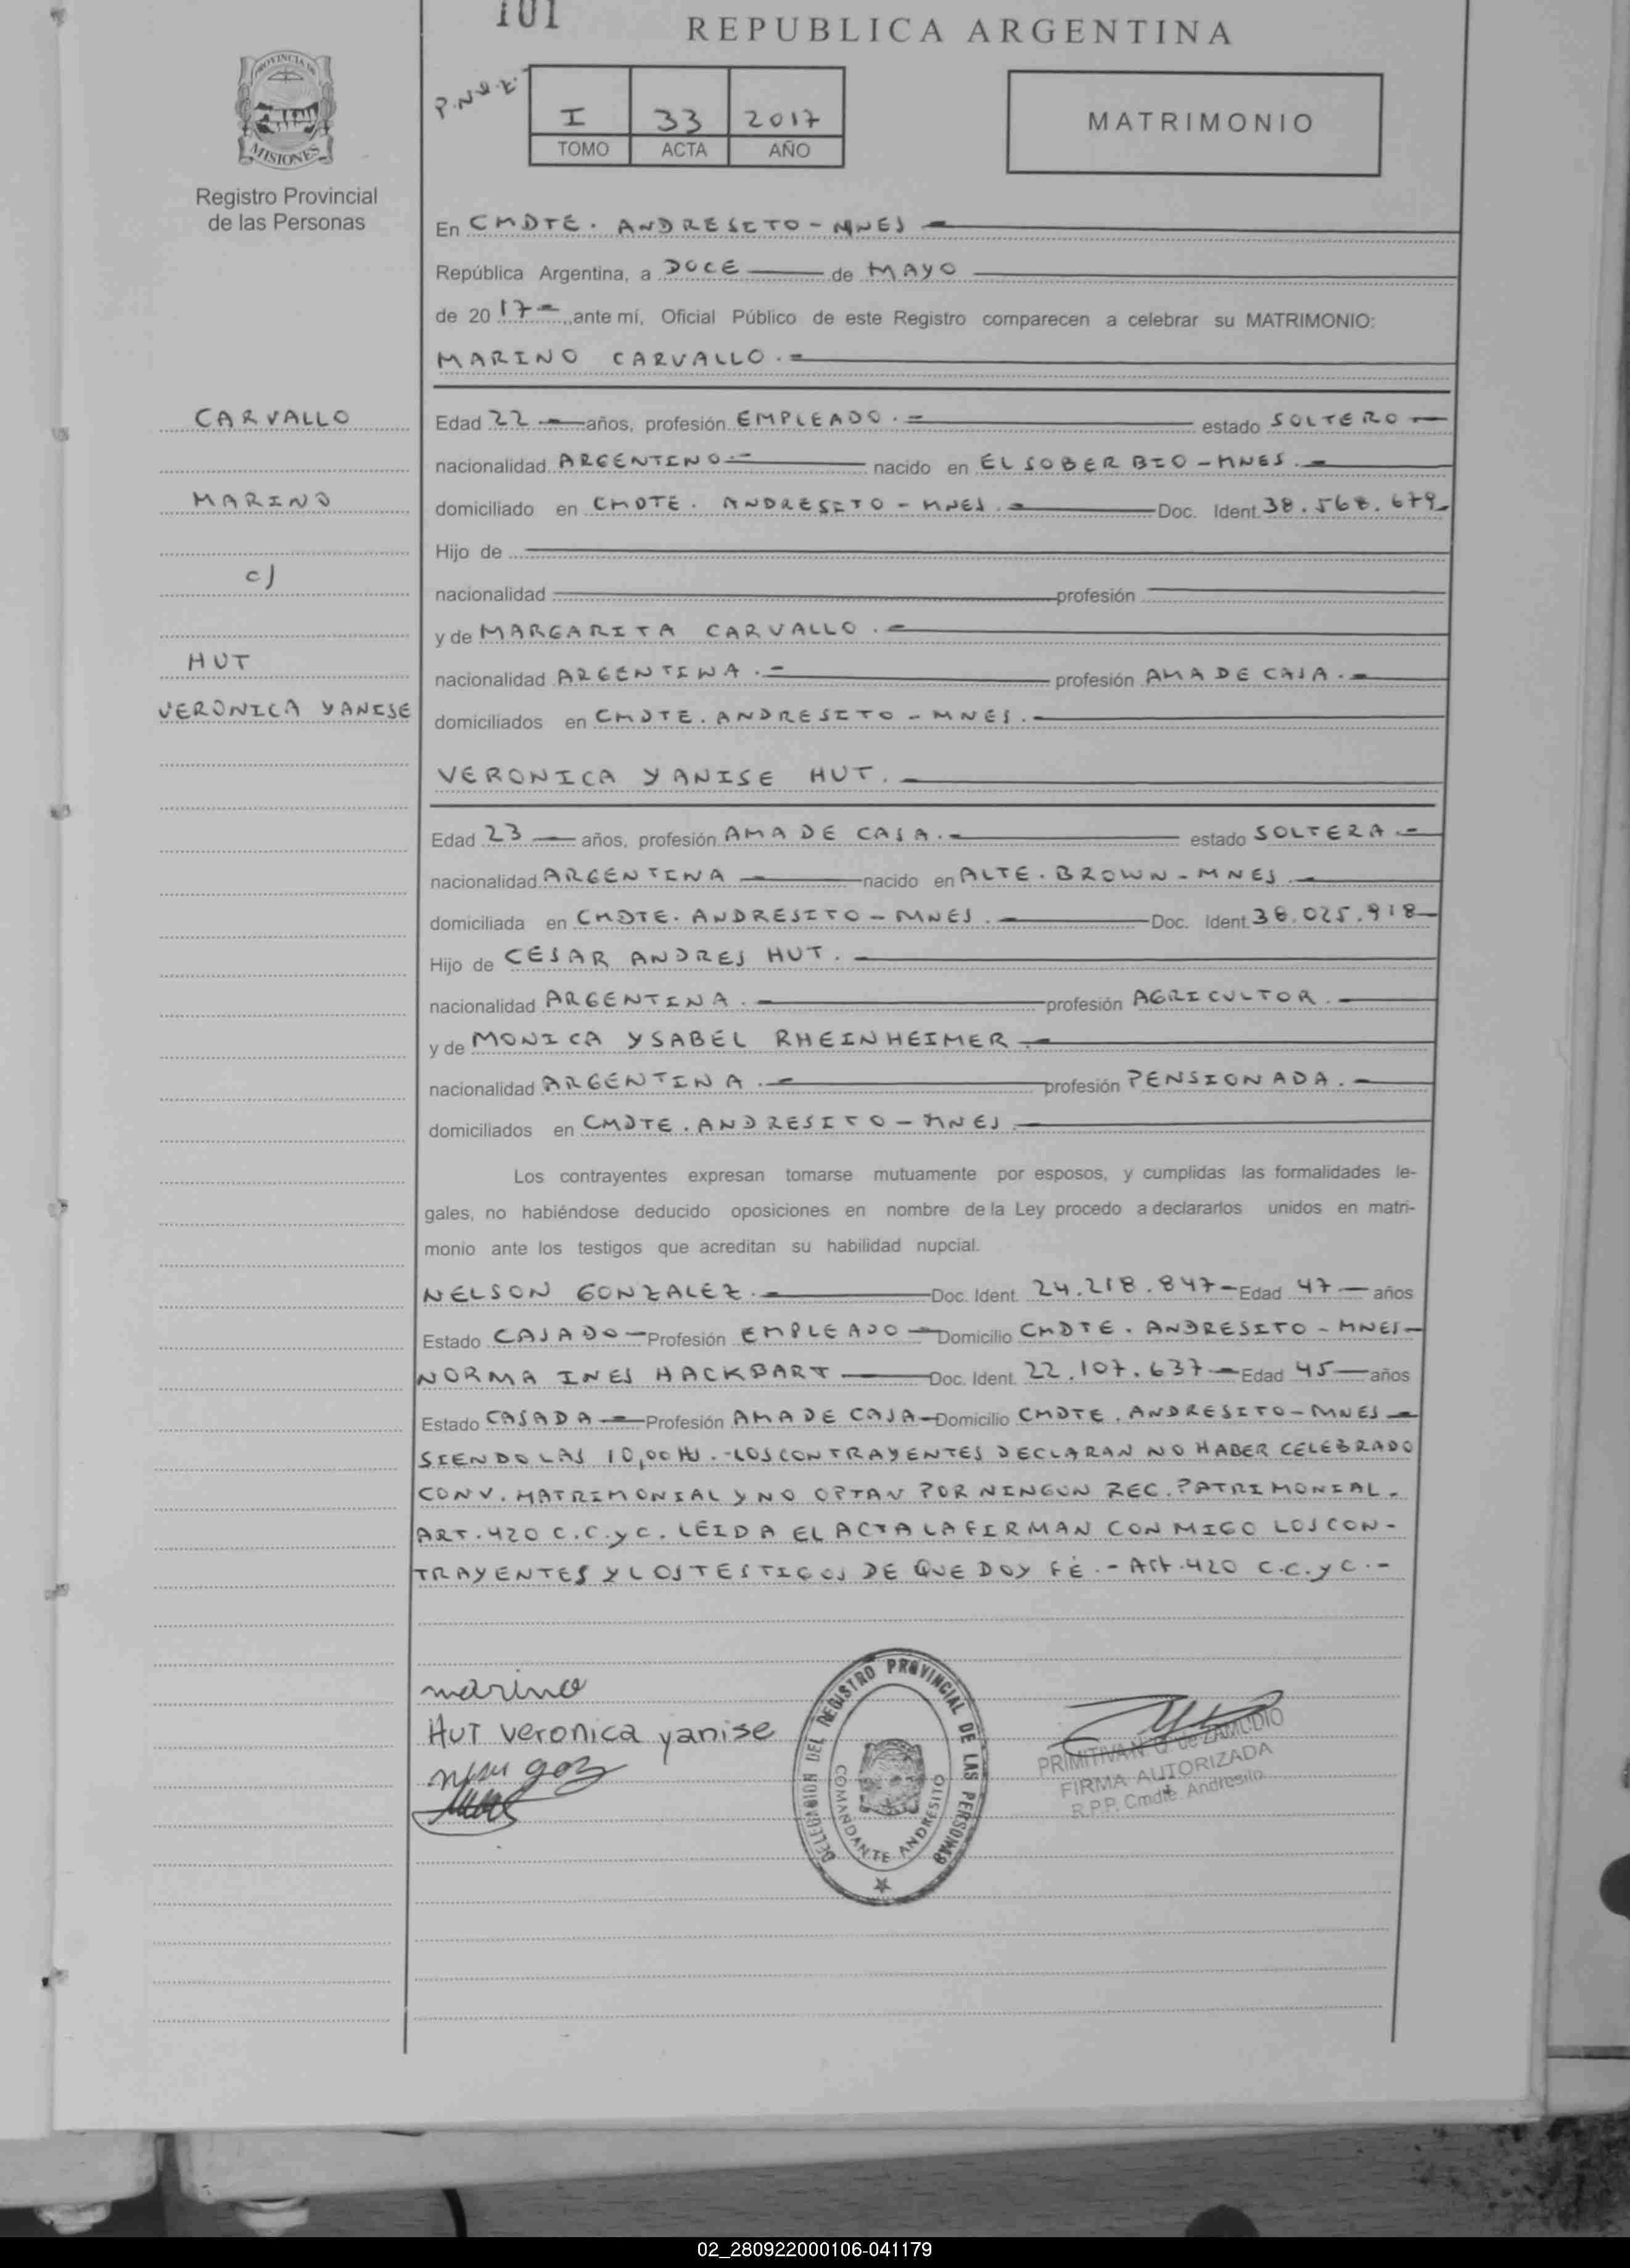 101
REPUBLICA ARGENTINA
PROVINCIA DE
MISIONES
Registro Provincial
de las Personas
I 33 2017
TOMO ACTA AÑO
MATRIMONIO
En CMDTE. ANDRESITO - MNES
República Argentina, a DOCE de MAYO
de 20 17 ante mí, Oficial Público de este Registro comparecen a celebrar su MATRIMONIO:
MARINO CARVALLO.
CARVALLO
MARINO
c/
HUT
VERONICA YANISE
Edad 22 años, profesión EMPLEADO. estado SOLTERO
nacionalidad ARGENTINO. nacido en EL SOBERBIO - MNES.
domiciliado en CMDTE. ANDRESITO - MNES. Doc. Ident. 38.568.679
Hijo de
nacionalidad profesión
y de MARGARITA CARVALLO.
nacionalidad ARGENTINA. profesión AMA DE CASA.
domiciliados en CMDTE. ANDRESITO - MNES.
VERONICA YANISE HUT.
Edad 23 años, profesión AMA DE CASA. estado SOLTERA.
nacionalidad ARGENTINA nacido en ALTE. BROWN - MNES.
domiciliada en CMDTE. ANDRESITO - MNES. Doc. Ident.
Hijo de CESAR ANDRES HUT.
nacionalidad ARGENTINA. profesión AGRICULTOR.
y de MONICA YSABEL RHEINHEIMER
nacionalidad ARGENTINA. profesión PENSIONADA.
domiciliados en CMDTE. ANDRESITO - MNES.
Los contrayentes expresan tomarse mutuamente por esposos, y cumplidas las formalidades le-
gales, no habiéndose deducido oposiciones en nombre de la Ley procedo a declararlos unidos en matri-
monio ante los testigos que acreditan su habilidad nupcial.
NELSON GONZALEZ. Doc. Ident. 24.218.847 Edad 47 años
Estado CASADO Profesión EMPLEADO Domicilio CMDTE. ANDRESITO - MNES
NORMA INES HACKBART Doc. Ident. 22.107.637 Edad 45 años
Estado CASADA Profesión AMA DE CASA Domicilio CMDTE. ANDRESITO - MNES
SIENDO LAS 10,00 Hs. - LOS CONTRAYENTES DECLARAN NO HABER CELEBRADO
CONV. MATRIMONIAL Y NO OPTAN POR NINGUN REC. PATRIMONIAL.
ART. 420 C.C.yC. LEIDA EL ACTA LA FIRMAN CONMIGO LOS CON-
TRAYENTES Y LOS TESTIGOS DE QUE DOY FÉ. - Art. 420 C.C.yC. -
marino
HUT veronica yanise
DELEGACION DEL REGISTRO PROVINCIAL DE LAS PERSONAS
COMANDANTE ANDRESITO
PRIMITIVA N. G. de ZAMUDIO
FIRMA AUTORIZADA
R.P.P. Cmdte. Andresito
02_280922000106-041179